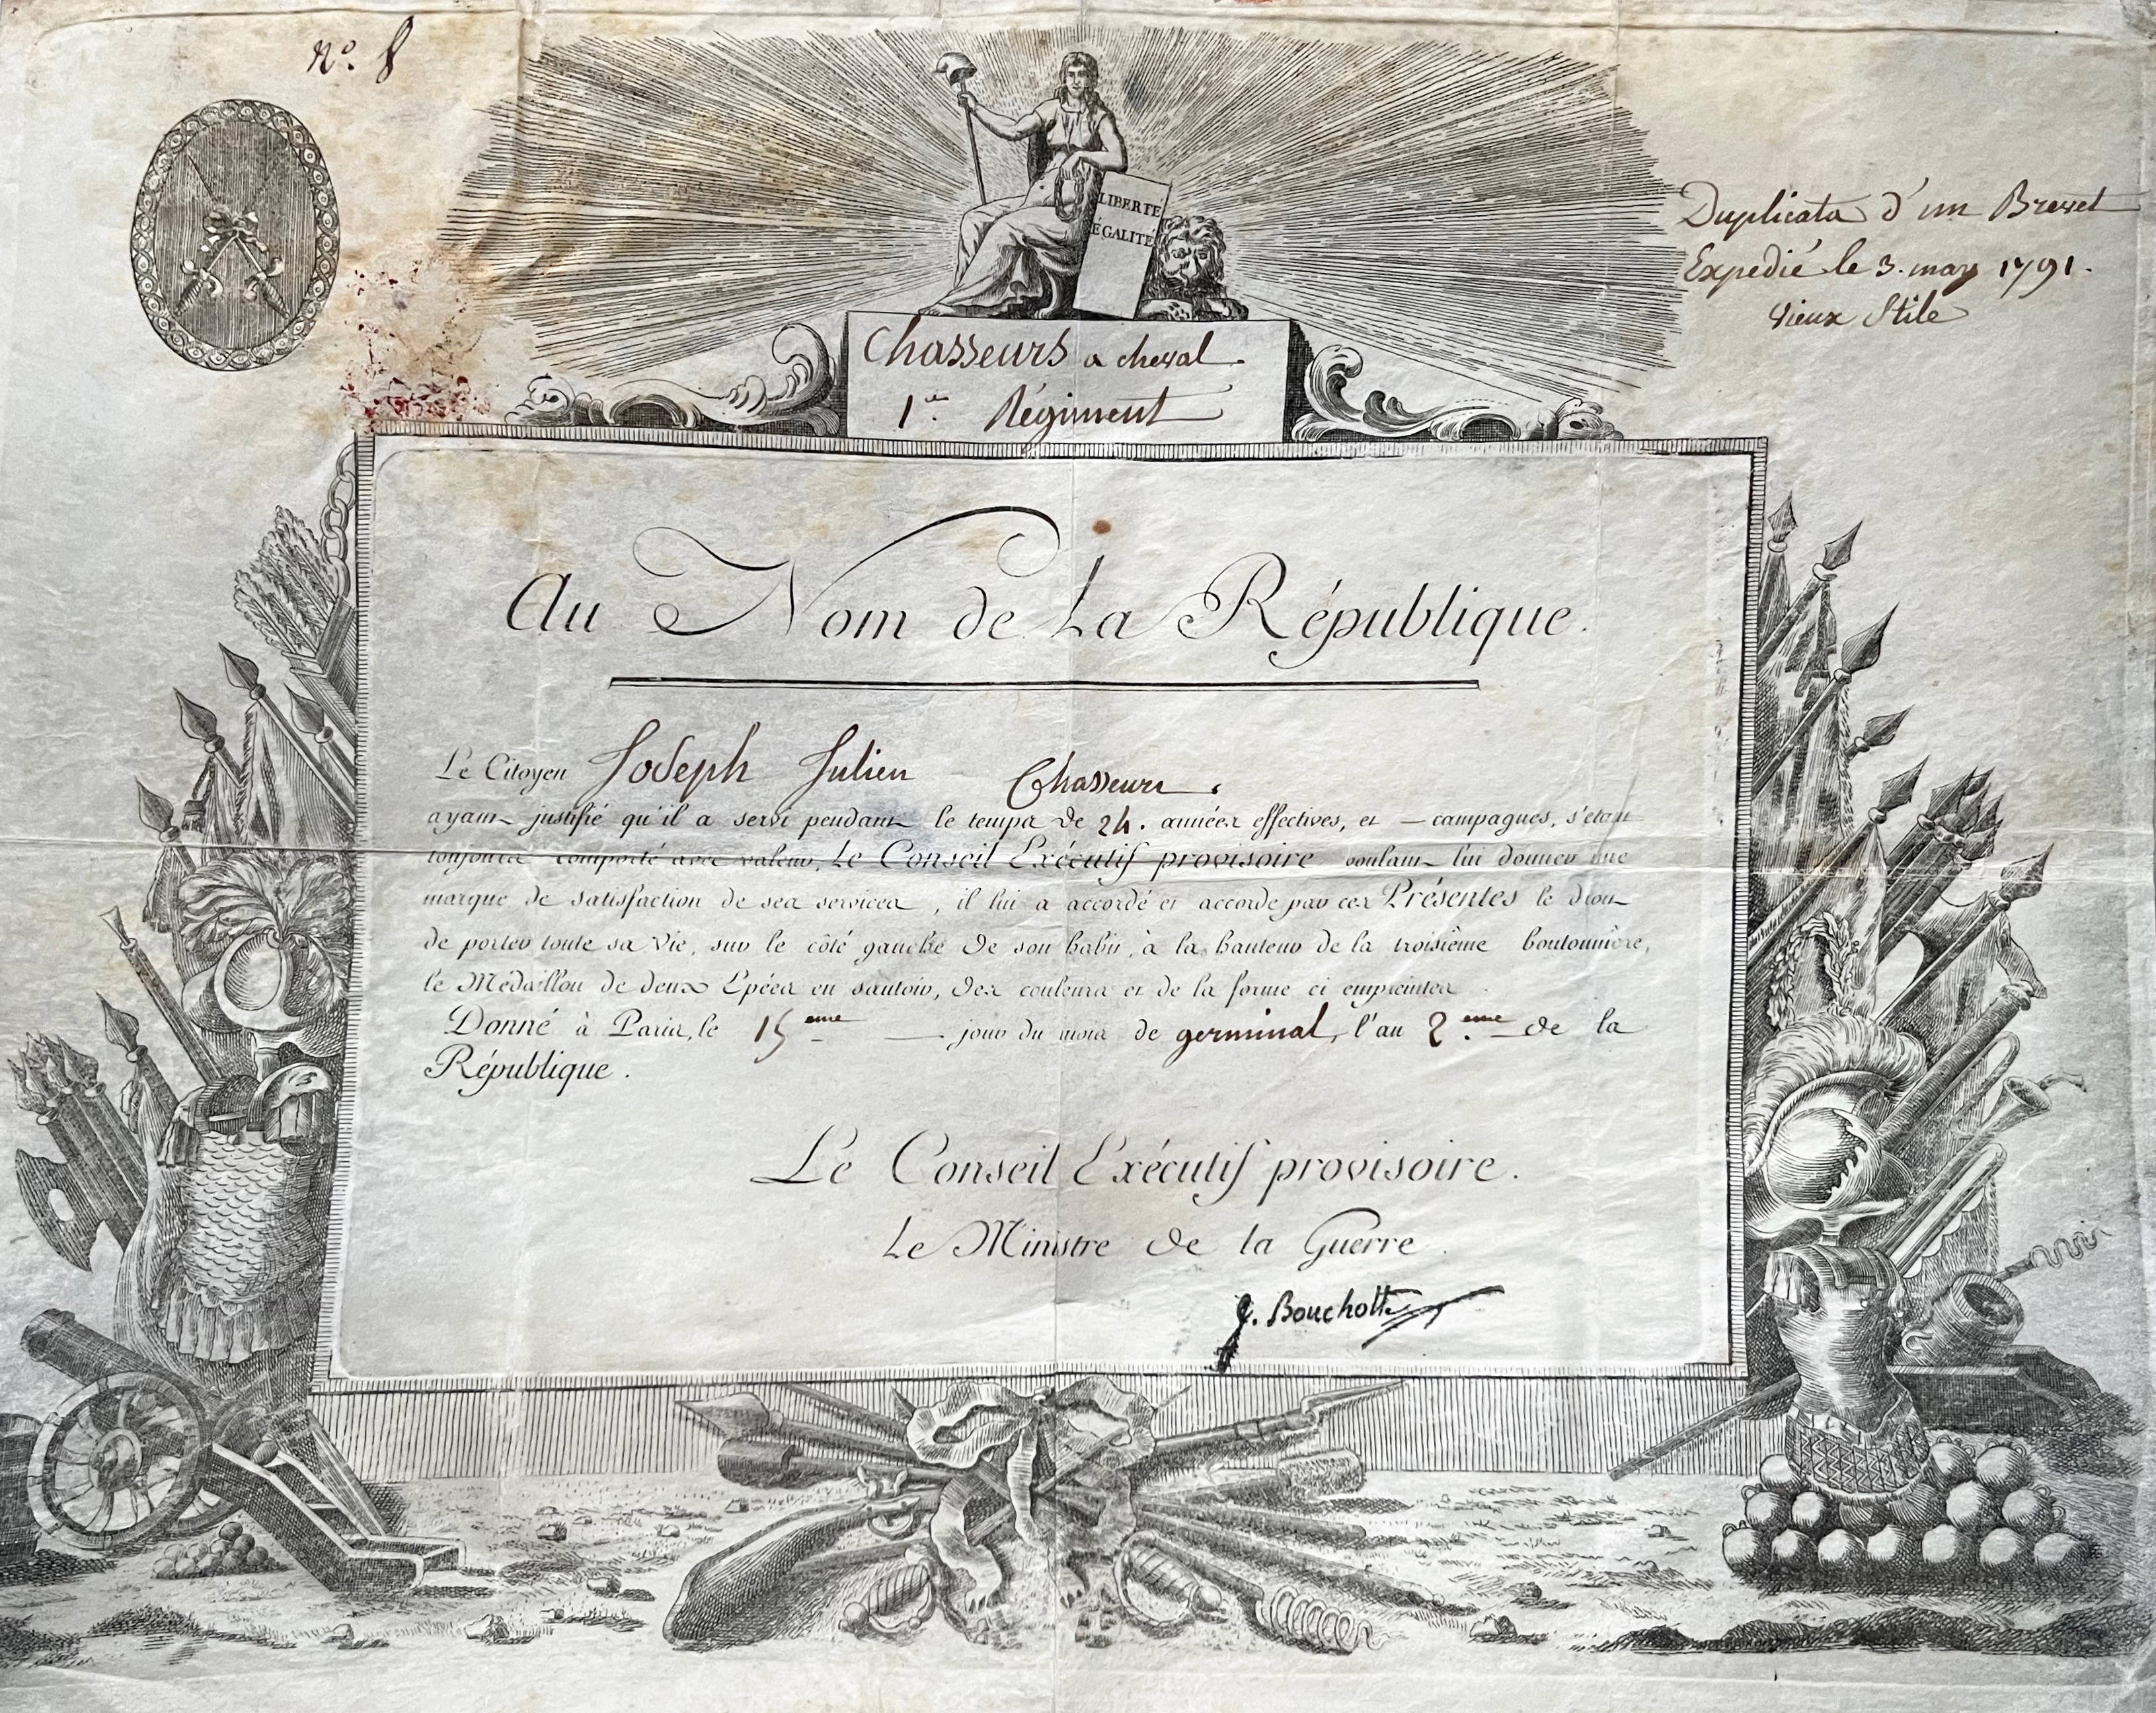 N.º 8
LIBERTÉ
ÉGALITÉ
Duplicata d'un Brevet
Expedié le 3. may 1791.
vieux Stile
Chasseurs a cheval
1.er Régiment
Au Nom de La République.
Le Citoyen Joseph Julien Chasseur.
ayant justifié qu'il a servi pendant le temps de 24. années effectives, et — campagnes, s'étant
toujours comporté avec valeur, Le Conseil Exécutif provisoire voulant lui donner une
marque de satisfaction de ses services, il lui a accordé et accorde par ces Présentes le droit
de porter toute sa vie, sur le côté gauche de son habit, à la hauteur de la troisième boutonnière,
le Médaillon de deux Epées en sautoir, des couleurs et de la forme ci empreintes.
Donné à Paris, le 15eme — jour du mois de germinal, l'an 2.eme de la
République.
Le Conseil Exécutif provisoire.
Le Ministre de la Guerre
J. Bouchotte